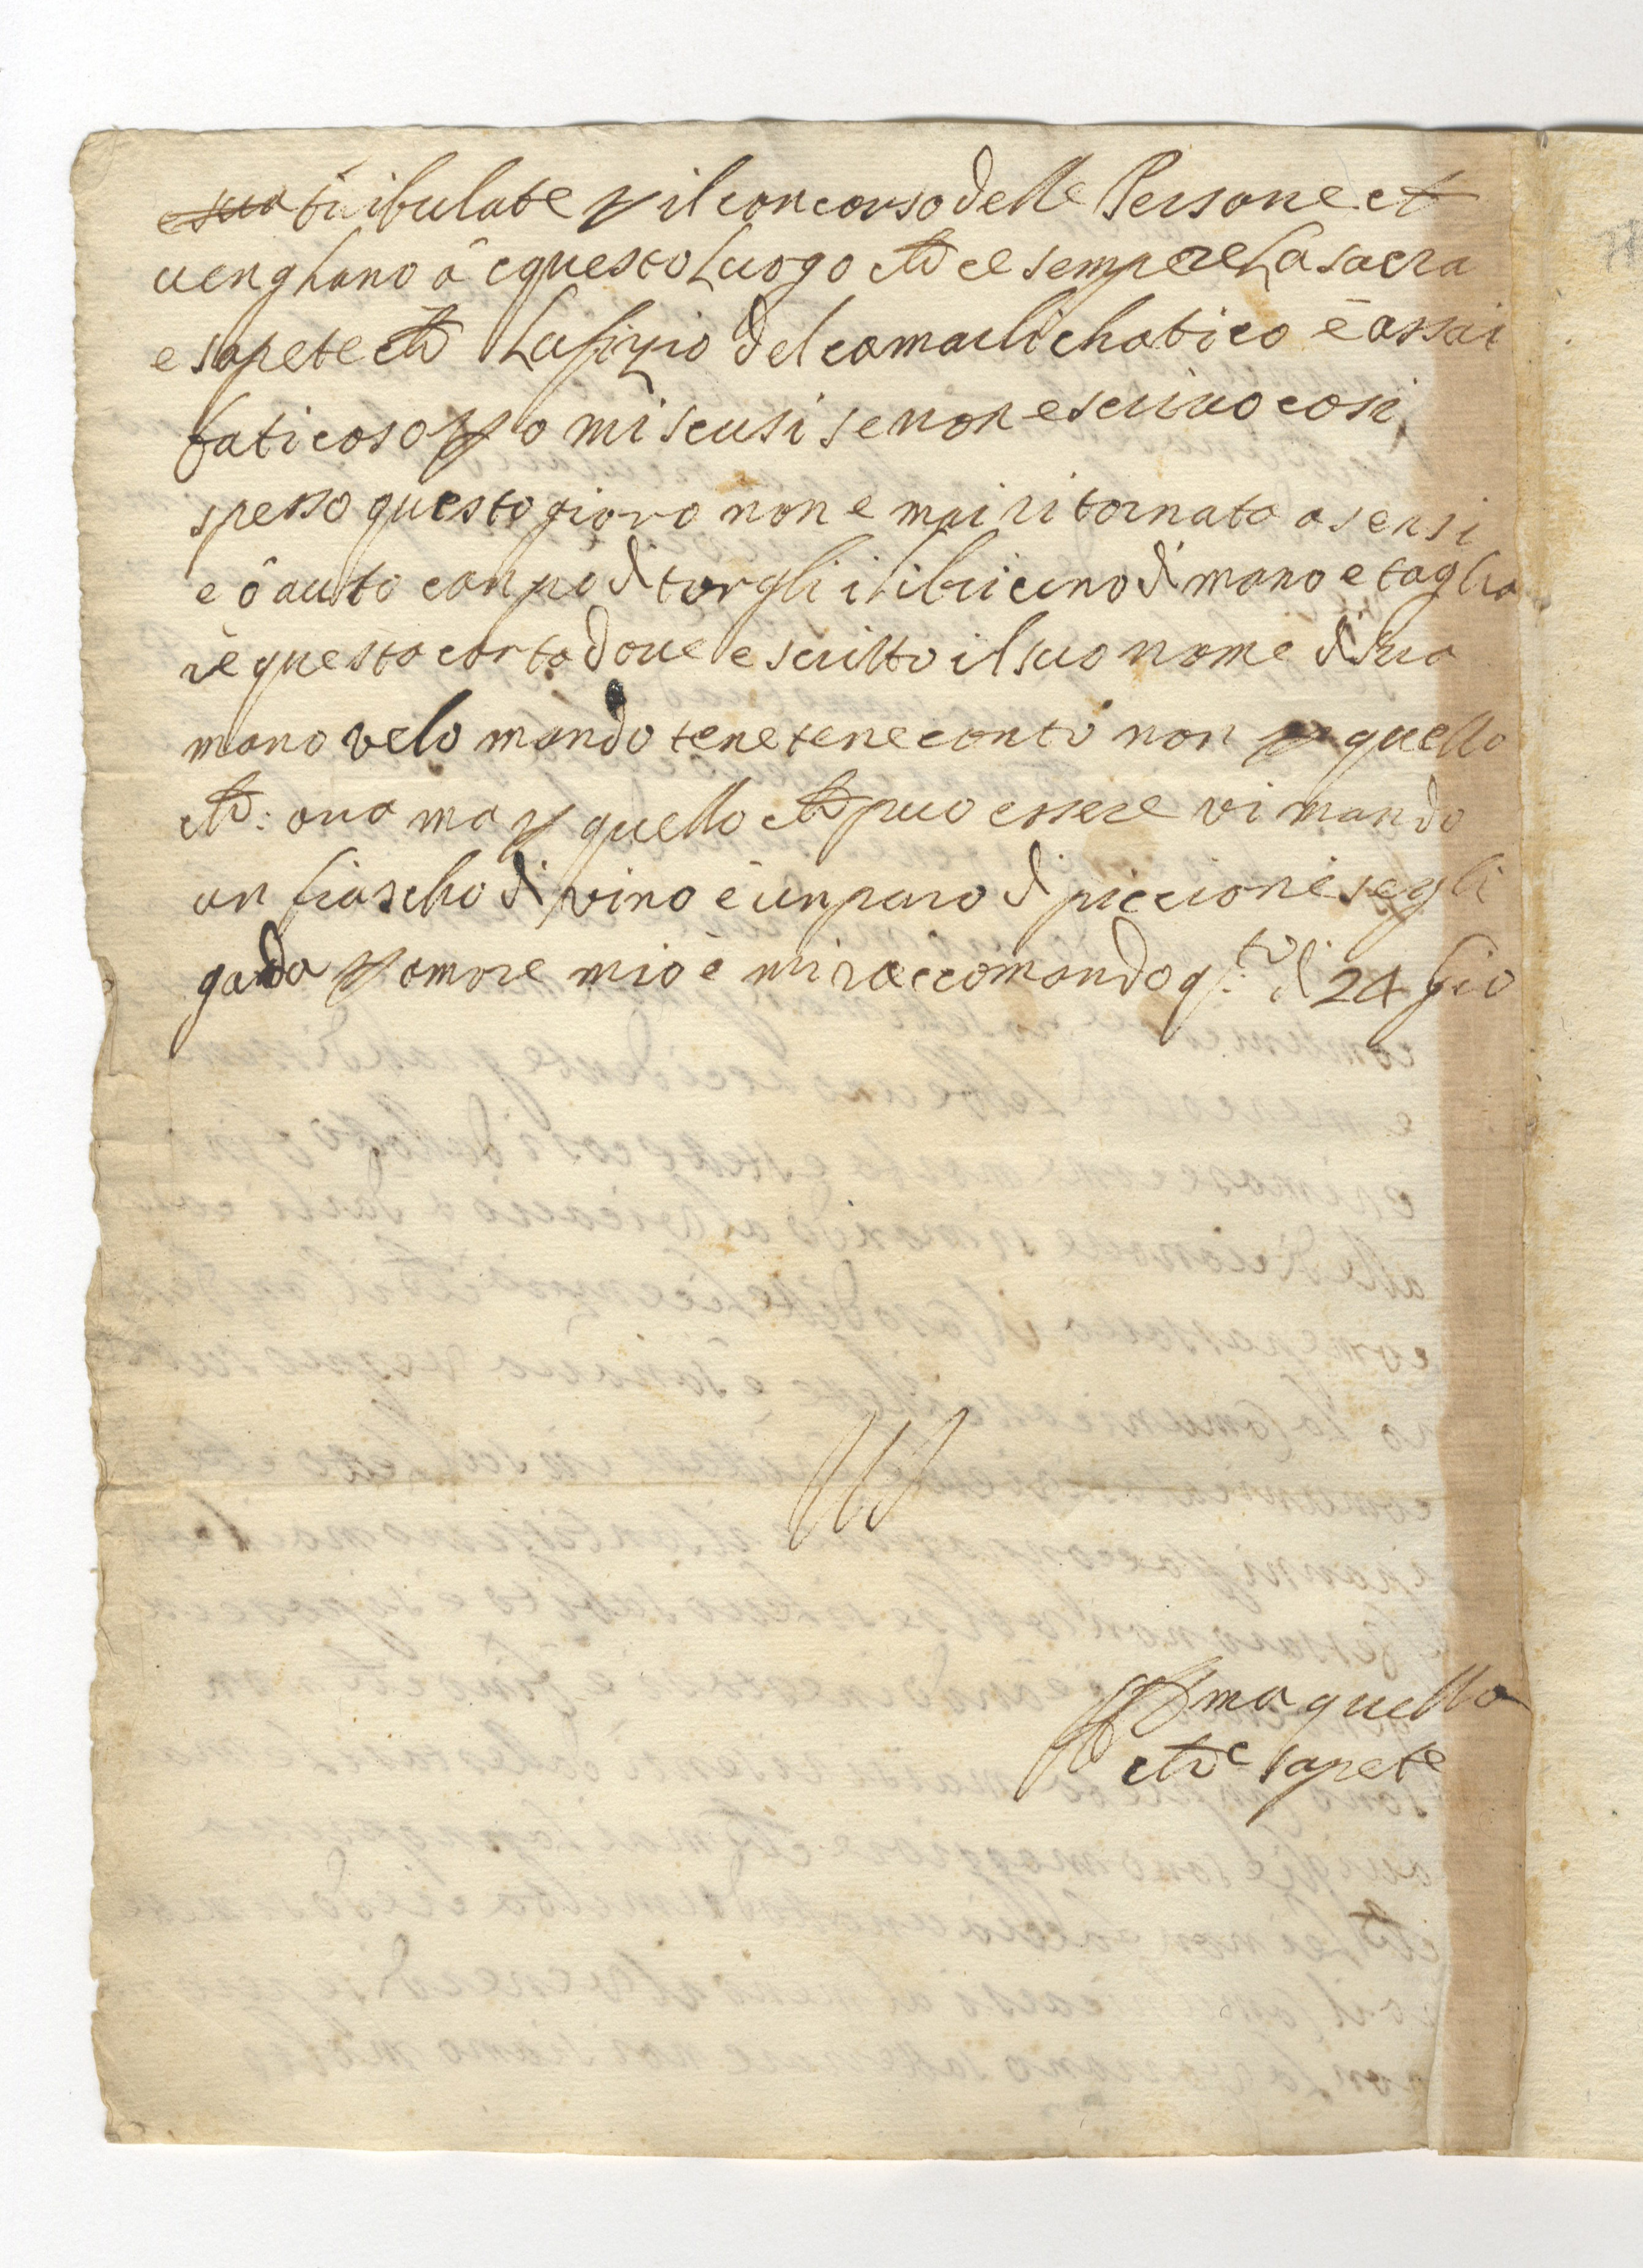 e sua tribulate p il concorso delle Persone ch
venghano à cquesto Luogo che ce sempre La sacra
e sapete che Lufizio del camarlichatico è assai
faticoso p o mi scusi se non escrivo cosi
spesso questo giorno non e mai ritornata a sensi
e ò auto canpo di torgli i libriccino di mano e taglia
re questa carta dove e scritto il suo nome di sua
mano velo mando tenetene conto non p quello
che: ora ma p quello che puo essere vi mando
un fiascho di vino è un paro di piccioni segli
goda p amore mio è mi raccomando q.to di 24 Giu
ma quella
che sapete